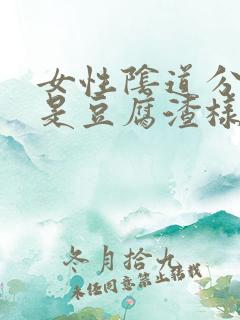 女性陰道分
是豆腐渣樣
冬月拾九
未经同意禁止转载